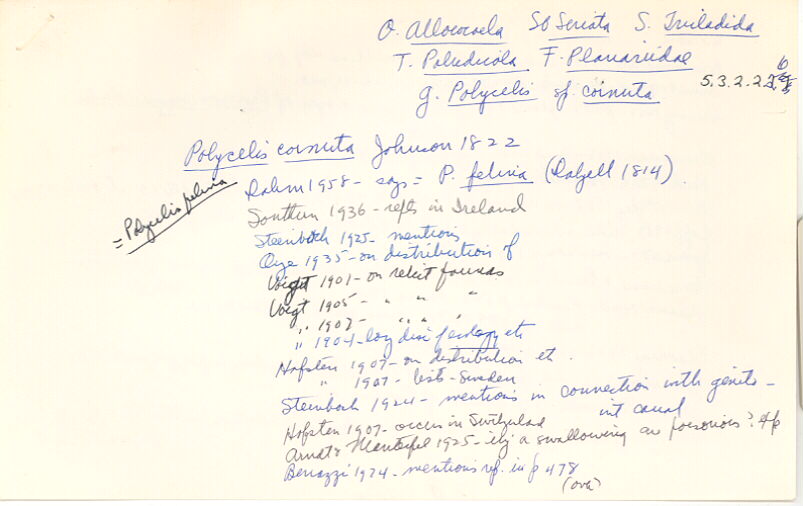 O. Alloeocoela SO Seriata S. Tricladida
T. Paludicola F. Planariidae
g. Polycelis sp. cornuta 5.3.2.2.
Polycelis cornuta Johnson 1822
= Polycelis felina
Dahm 1958 - says = P. felina (Dalyell 1814)
Southern 1936 - repts in Ireland
Steinböck 1925 - mentions
Oye 1935 - on distribution of
Voigt 1901 - on relict faunas
Voigt 1905 - " " "
" 1902 - " " "
" 1904 - ecology etc
Hofsten 1907 - on distribution etc.
" 1907 - lists - Sweden
Steinböck 1924 - mentions in connection with genito-int canal
Hofsten 1907 - occurs in Switzerland
Arndt & Manteufel 1925 - if a swallowing are poisonous?
Benazzi 1974 - mentions ref. in p 478
(over)